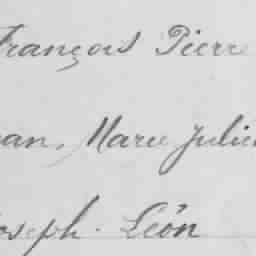 François Pierre
Jean, Marie Julien
Joseph. Léon